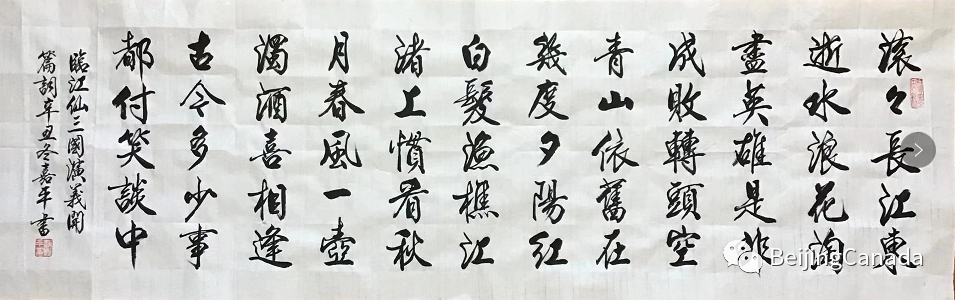 滚々長江東
逝水浪花淘
盡英雄是非
成敗轉頭空
青山依舊在
幾度夕陽红
白髮漁樵江
渚上慣看秋
月春風一壺
濁酒喜相逢
古今多少事
都付笑談中
臨江仙三國演義開
篇詞辛丑冬嘉平書
BeijingCanada